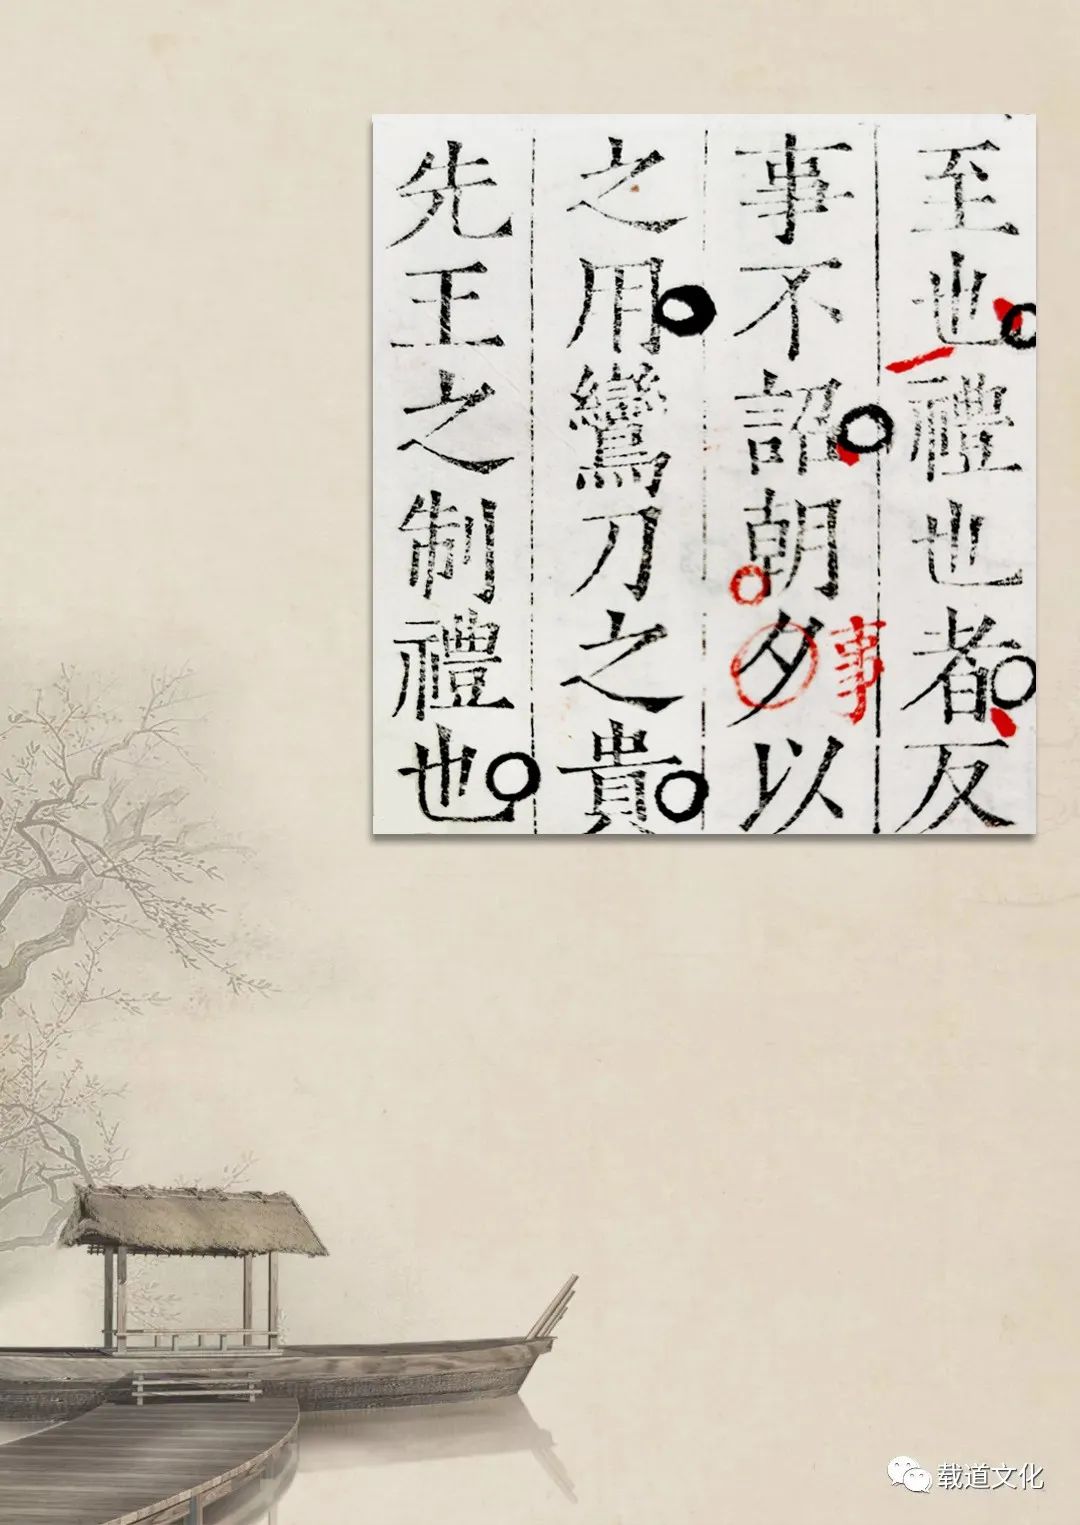 至也禮也者反
事不詔朝夕以
事
之用鸞刀之貴
先王之制禮也
载道文化